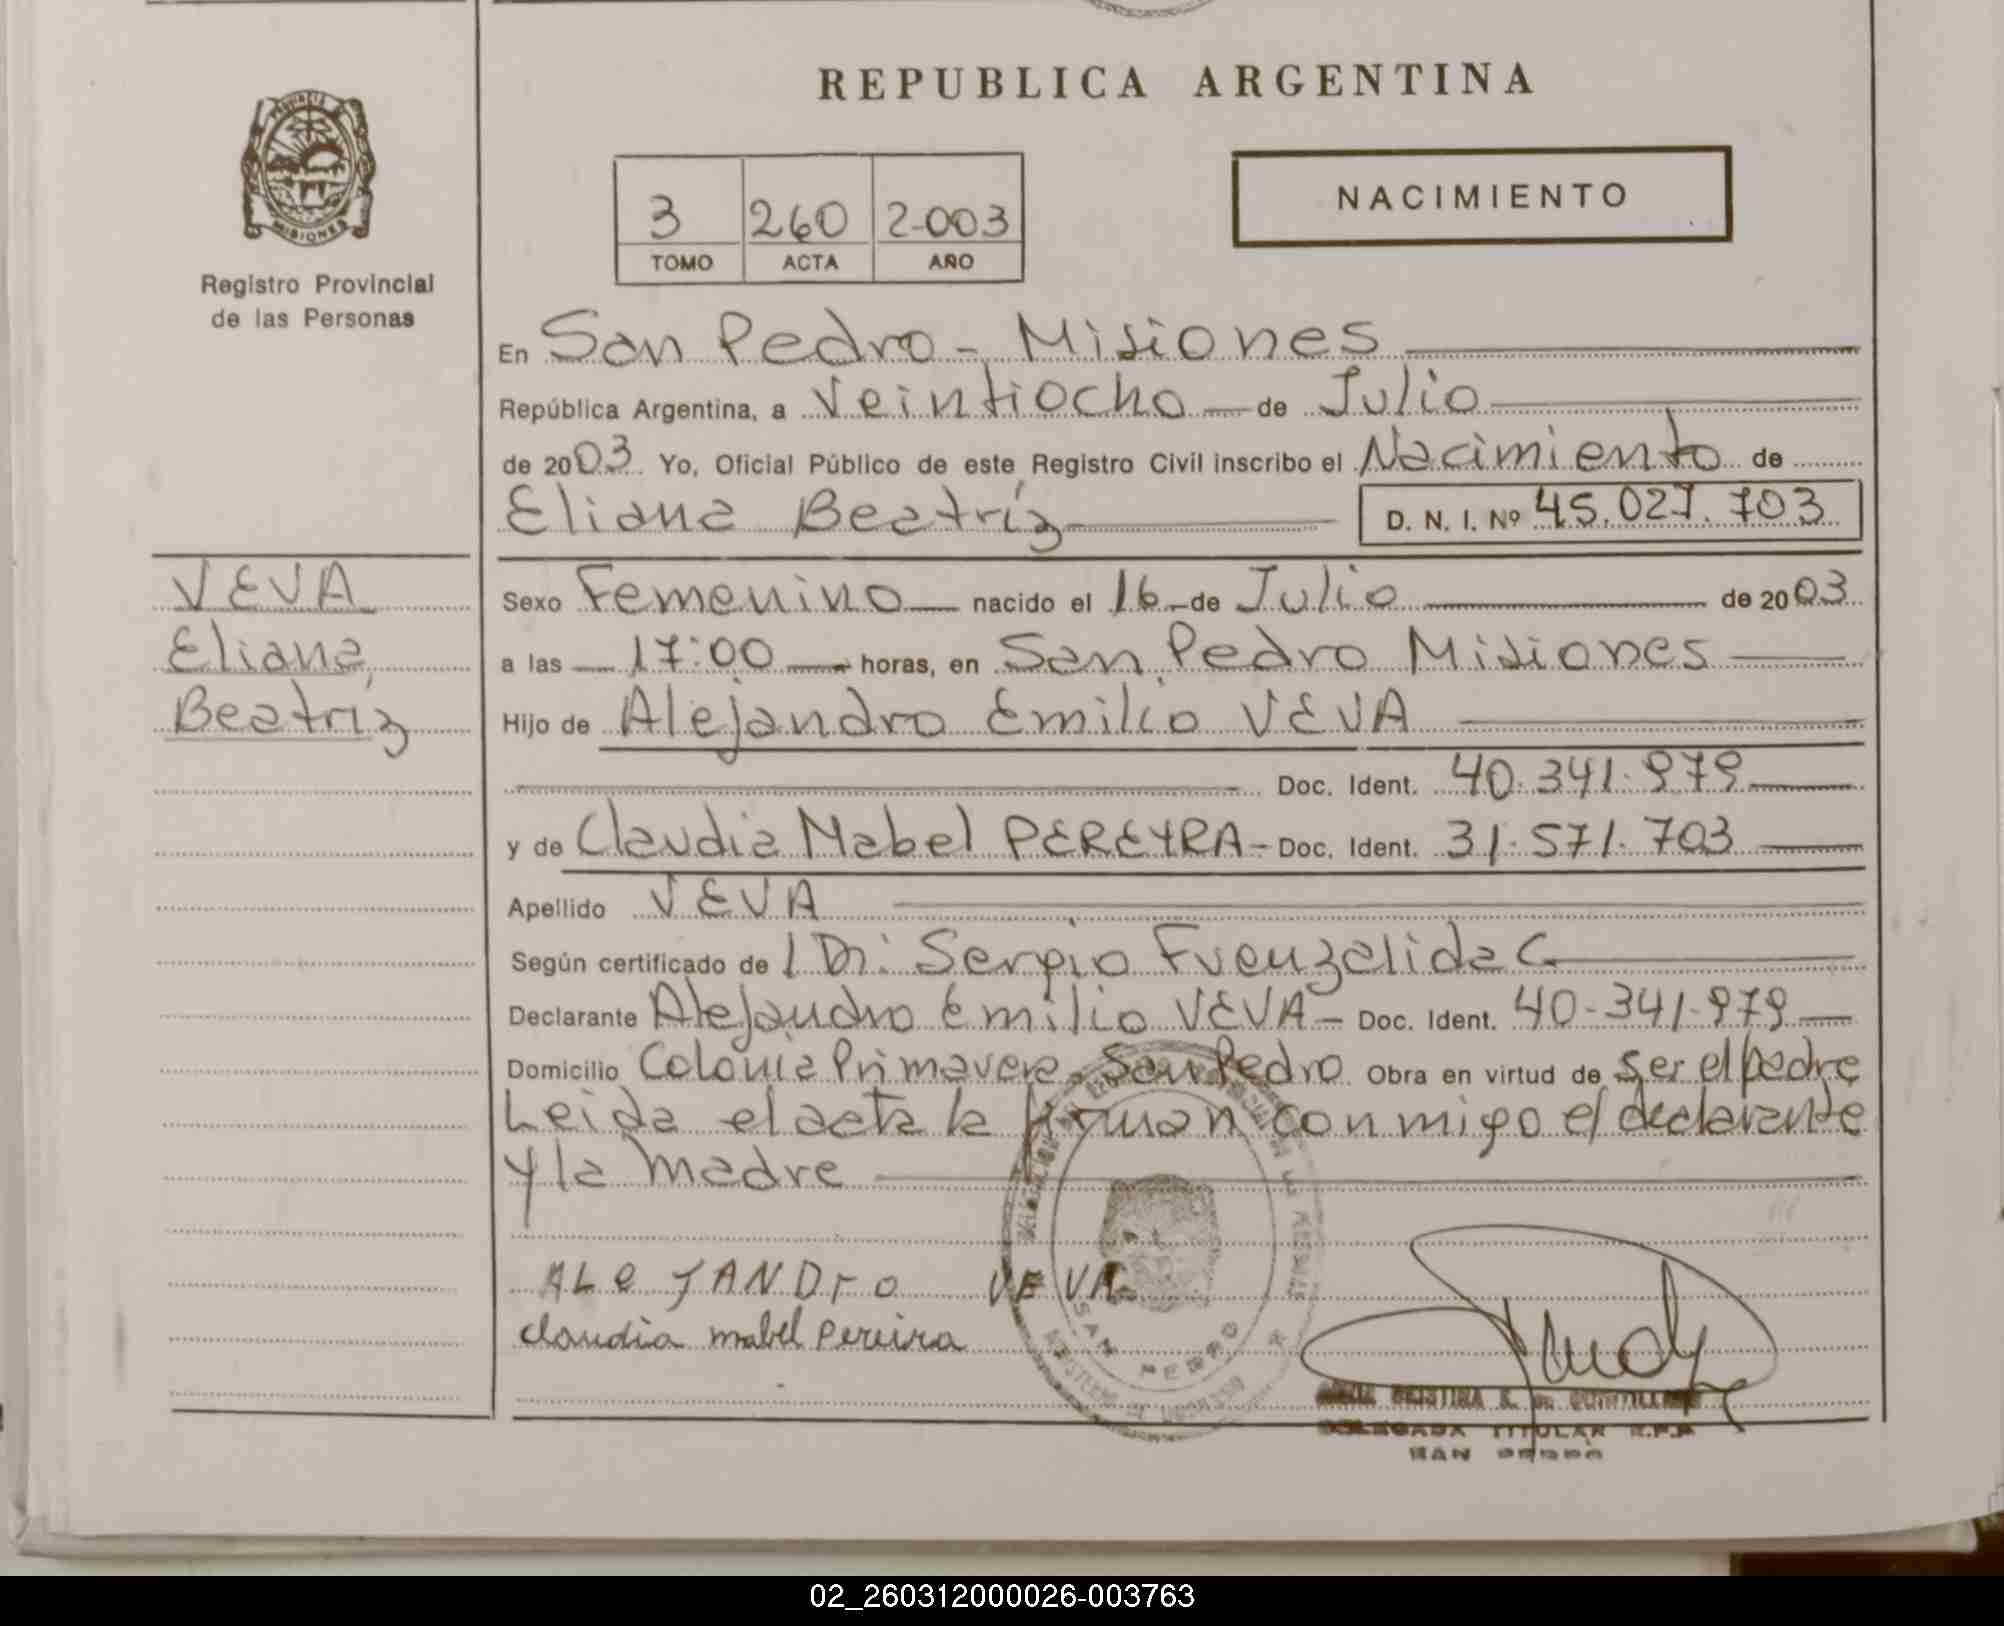 REPUBLICA ARGENTINA
PROVINCIA DE
MISIONES
Registro Provincial
de las Personas
3 260 2.003
TOMO ACTA AÑO
NACIMIENTO
En San Pedro - Misiones
República Argentina, a Veintiocho de Julio
de 2003 Yo, Oficial Público de este Registro Civil inscribo el Nacimiento de
Eliana Beatríz D. N. I. Nº 45.027.703
VEVA
Eliana
Beatríz
Sexo Femenino nacido el 16 de Julio de 2003
a las 17:00 horas, en San Pedro Misiones
Hijo de Alejandro Emilio VEVA
Doc. Ident. 40.341.979
y de Claudia Mabel PEREYRA - Doc. Ident. 31.571.703
Apellido VEVA
Según certificado de Dr: Sergio Fuenzalida C.
Declarante Alejandro Emilio VEVA - Doc. Ident. 40-341-979
Domicilio Colonia Primavera San Pedro Obra en virtud de ser el padre
Leida el acta la firman conmigo el declarante
y la madre
ALeJANDro VEVA
claudia mabel Pereira
SAN PEDRO
CRISTINA K. de
DELEGADA TITULAR R.P.P.
SAN PEDRO
02_260312000026-003763